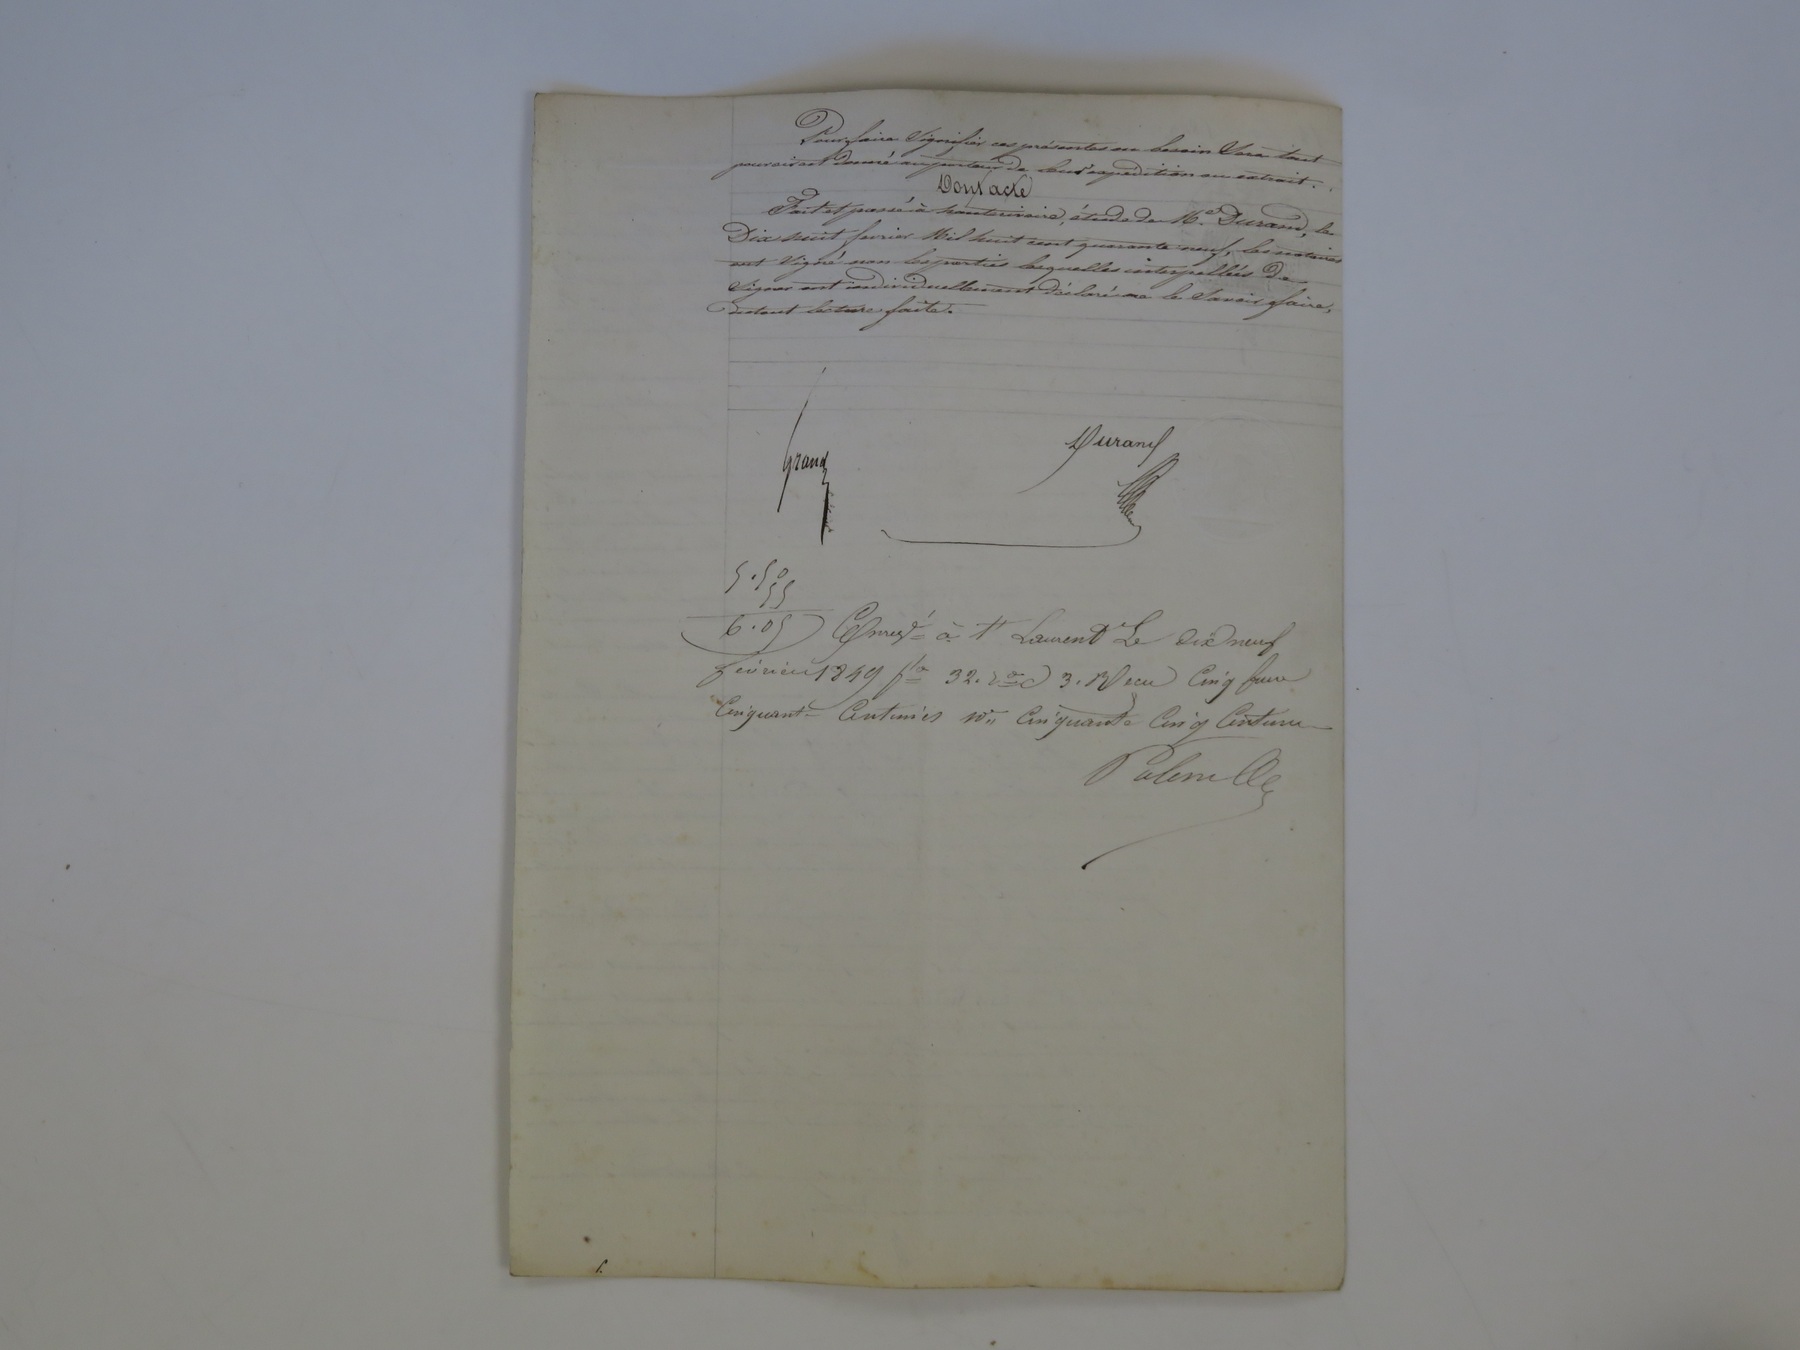 Pour faire signifier ces présentes au besoin sera tout
pouvoir est donné au porteur de leur expédition ou extrait.
Dont acte
Fait et passé à hauterivoire, étude de Me. Durand, le
Dix huit fevrier Mil huit cent quarante neuf, les notaires
ont signé non les parties lesquelles interpellées de
signer ont individuellement déclaré ne le savoir faire,
du tout lecture faite.
Durand
grand
5.50
55
6.05
Enregé à St Laurent Le dix neuf
fevrier 1849 fo 32. ro c 3. Reçu Cinq francs
Cinquante Centimes Cinquante Cinq Centimes